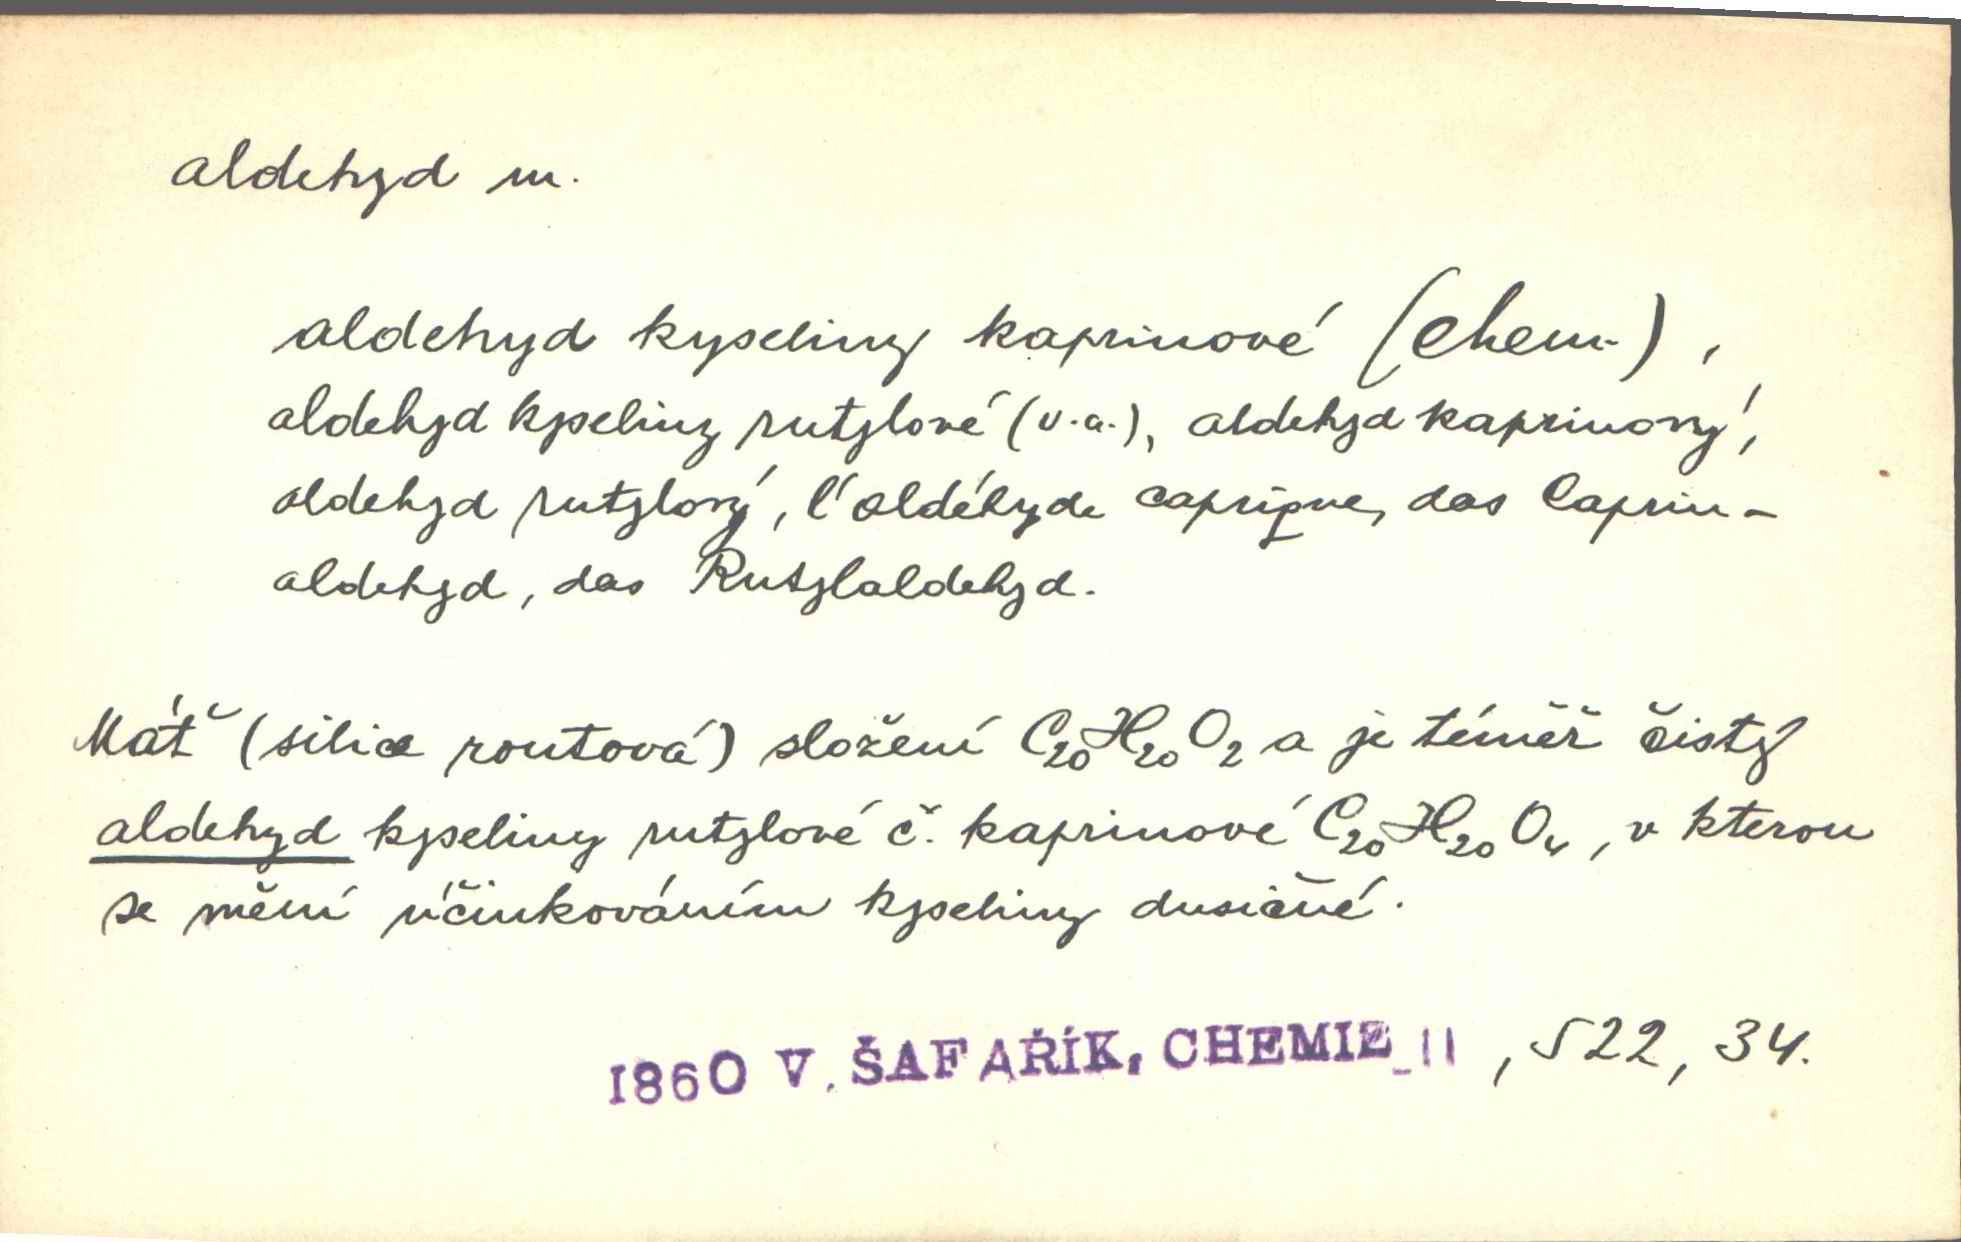 aldehyd m.
aldehyd kyseliny kaprinové (chem.),
aldehyd kyseliny rutylové (v.a.), aldehyd kaprinový,
aldehyd rutylový, l'aldéhyde caprique, das Caprin-
aldehyd, das Rutylaldehyd.
Máť (silice routová) složení C₂₀H₂₀O₂ a je téměř čistý
aldehyd kyseliny rutylové č. kaprinové C₂₀H₂₀O₄, v kterou
se mění účinkováním kyseliny dusičné.
1860 V. ŠAFAŘÍK, CHEMIE II, 522, 34.